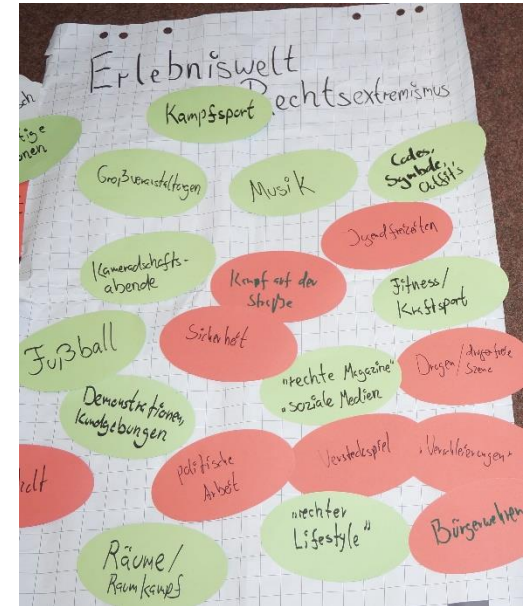 Erlebniswelt
Rechtsextremismus
Kampfsport
Großveranstaltungen
Musik
Codes,
Symbole,
Outfit's
Jugendfreizeiten
Kameradschafts-
abende
Kampf auf der
Straße
Fitness/
Kraftsport
Fußball
Sicherheit
"rechte Magazine"
"soziale Medien
Drogen/drogenfreie
Szene
Demonstrationen,
Kundgebungen
politische
Arbeit
Versteckspiel
"Verschleierungen"
"rechter
Lifestyle"
Bürgerwehren
Räume/
Raumkampf